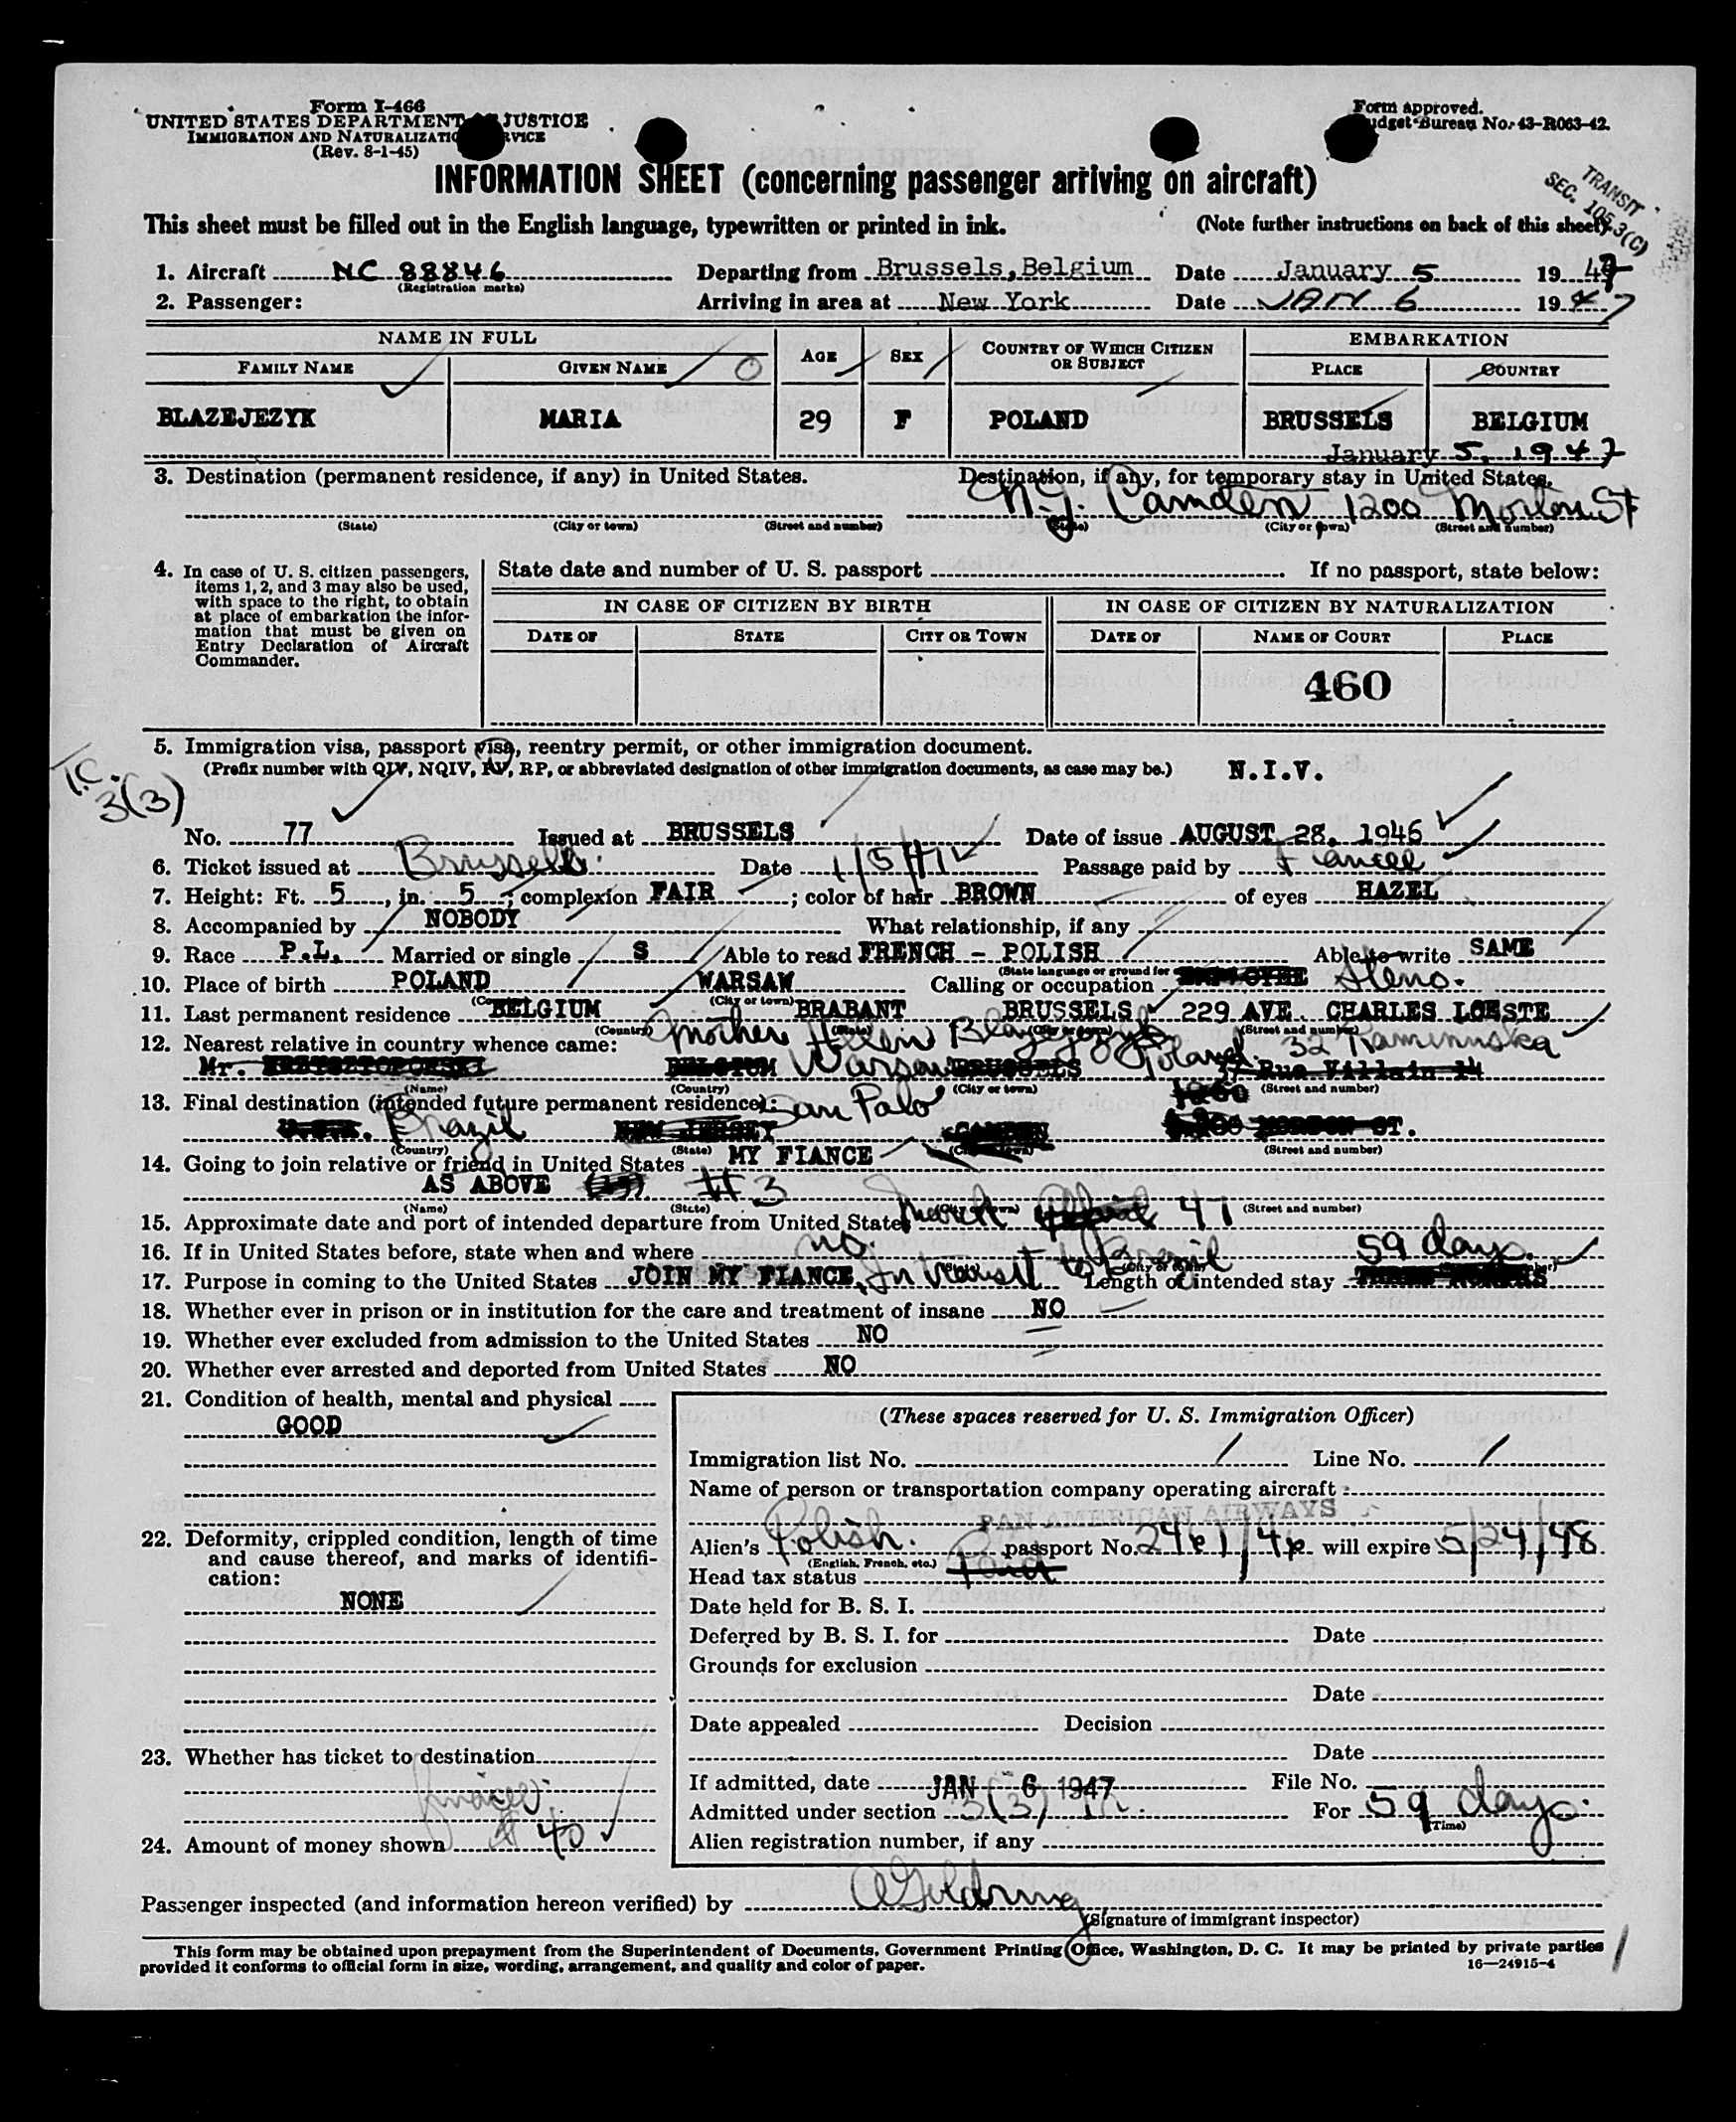 Form I-466
UNITED STATES DEPARTMENT JUSTICE
IMMIGRATION AND NATURALIZATION SERVICE
(Rev. 8-1-45)
Form approved.
Budget Bureau No. 43-R063-42.
INFORMATION SHEET (concerning passenger arriving on aircraft)
TRANSIT
SEC. 105.3(C)
This sheet must be filled out in the English language, typewritten or printed in ink. (Note further instructions on back of this sheet).
1. Aircraft NC 88846 Departing from Brussels, Belgium Date January 5 1947
(Registration marks)
2. Passenger: Arriving in area at New York Date JAN 6 1947
NAME IN FULL AGE SEX COUNTRY OF WHICH CITIZEN OR SUBJECT EMBARKATION
FAMILY NAME GIVEN NAME PLACE COUNTRY
BLAZEJEZYK MARIA 29 F POLAND BRUSSELS BELGIUM
January 5, 1947
3. Destination (permanent residence, if any) in United States. Destination, if any, for temporary stay in United States.
N.J. Camden 1200 Morton St
(State) (City or town) (Street and number) (State) (City or town) (Street and number)
4. In case of U. S. citizen passengers, items 1, 2, and 3 may also be used, with space to the right, to obtain at place of embarkation the information that must be given on Entry Declaration of Aircraft Commander.
State date and number of U. S. passport If no passport, state below:
IN CASE OF CITIZEN BY BIRTH IN CASE OF CITIZEN BY NATURALIZATION
DATE OF STATE CITY OR TOWN DATE OF NAME OF COURT PLACE
460
5. Immigration visa, passport visa, reentry permit, or other immigration document.
(Prefix number with QIV, NQIV, PV, RP, or abbreviated designation of other immigration documents, as case may be.) N.I.V.
T.C. 3(3)
No. 77 Issued at BRUSSELS Date of issue AUGUST 28, 1946
6. Ticket issued at Brussels. Date 1/5/47 Passage paid by Fiancee
7. Height: Ft. 5, in. 5; complexion FAIR; color of hair BROWN of eyes HAZEL
8. Accompanied by NOBODY What relationship, if any
9. Race P.L. Married or single S Able to read FRENCH - POLISH Able to write SAME
(State language or ground for
10. Place of birth POLAND WARSAW Calling or occupation Steno.
(City or town)
11. Last permanent residence BELGIUM BRABANT BRUSSELS 229 AVE. CHARLES LOESTE
(Country) (State) (City or town) (Street and number)
12. Nearest relative in country whence came: Mother Warsaw Poland. 32
Mr. BELGIUM BRUSSELS 37 Rue Villain 14
(Name) (Country) (City or town) (Street and number)
13. Final destination (intended future permanent residence): San Palo
U.S.A. Brazil NEW JERSEY CAMDEN MORTON ST.
(Country) (State) (City or town) (Street and number)
14. Going to join relative or friend in United States MY FIANCE
AS ABOVE # 3
(Name) (State) (City or town) (Street and number)
15. Approximate date and port of intended departure from United States March 47
16. If in United States before, state when and where no. 59 days.
17. Purpose in coming to the United States JOIN MY FIANCE, In transit to Brazil Length of intended stay
18. Whether ever in prison or in institution for the care and treatment of insane NO
19. Whether ever excluded from admission to the United States NO
20. Whether ever arrested and deported from United States NO
21. Condition of health, mental and physical
GOOD
22. Deformity, crippled condition, length of time and cause thereof, and marks of identification:
NONE
23. Whether has ticket to destination
24. Amount of money shown $ 40
(These spaces reserved for U. S. Immigration Officer)
Immigration list No. Line No.
Name of person or transportation company operating aircraft
PAN AMERICAN AIRWAYS
Alien's Polish. passport No. will expire 5/24/48
(English, French, etc.)
Head tax status Paid
Date held for B. S. I.
Deferred by B. S. I. for Date
Grounds for exclusion
Date
Date appealed Decision
Date
If admitted, date JAN 6 1947 File No.
Admitted under section 3(3) For 59 days.
(Time)
Alien registration number, if any
Passenger inspected (and information hereon verified) by
(Signature of immigrant inspector)
This form may be obtained upon prepayment from the Superintendent of Documents, Government Printing Office, Washington, D. C. It may be printed by private parties
provided it conforms to official form in size, wording, arrangement, and quality and color of paper. 16—24915-4